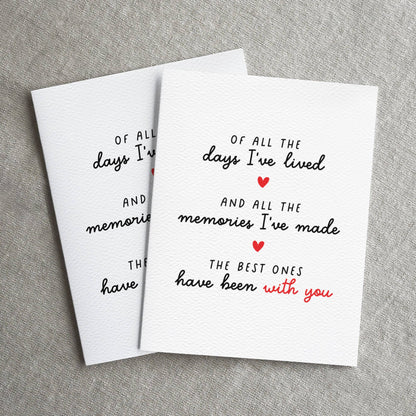 OF ALL
days I'v
AND
memories
TH
have
OF ALL THE
days I've lived
AND ALL THE
memories I've made
THE BEST ONES
have been with you